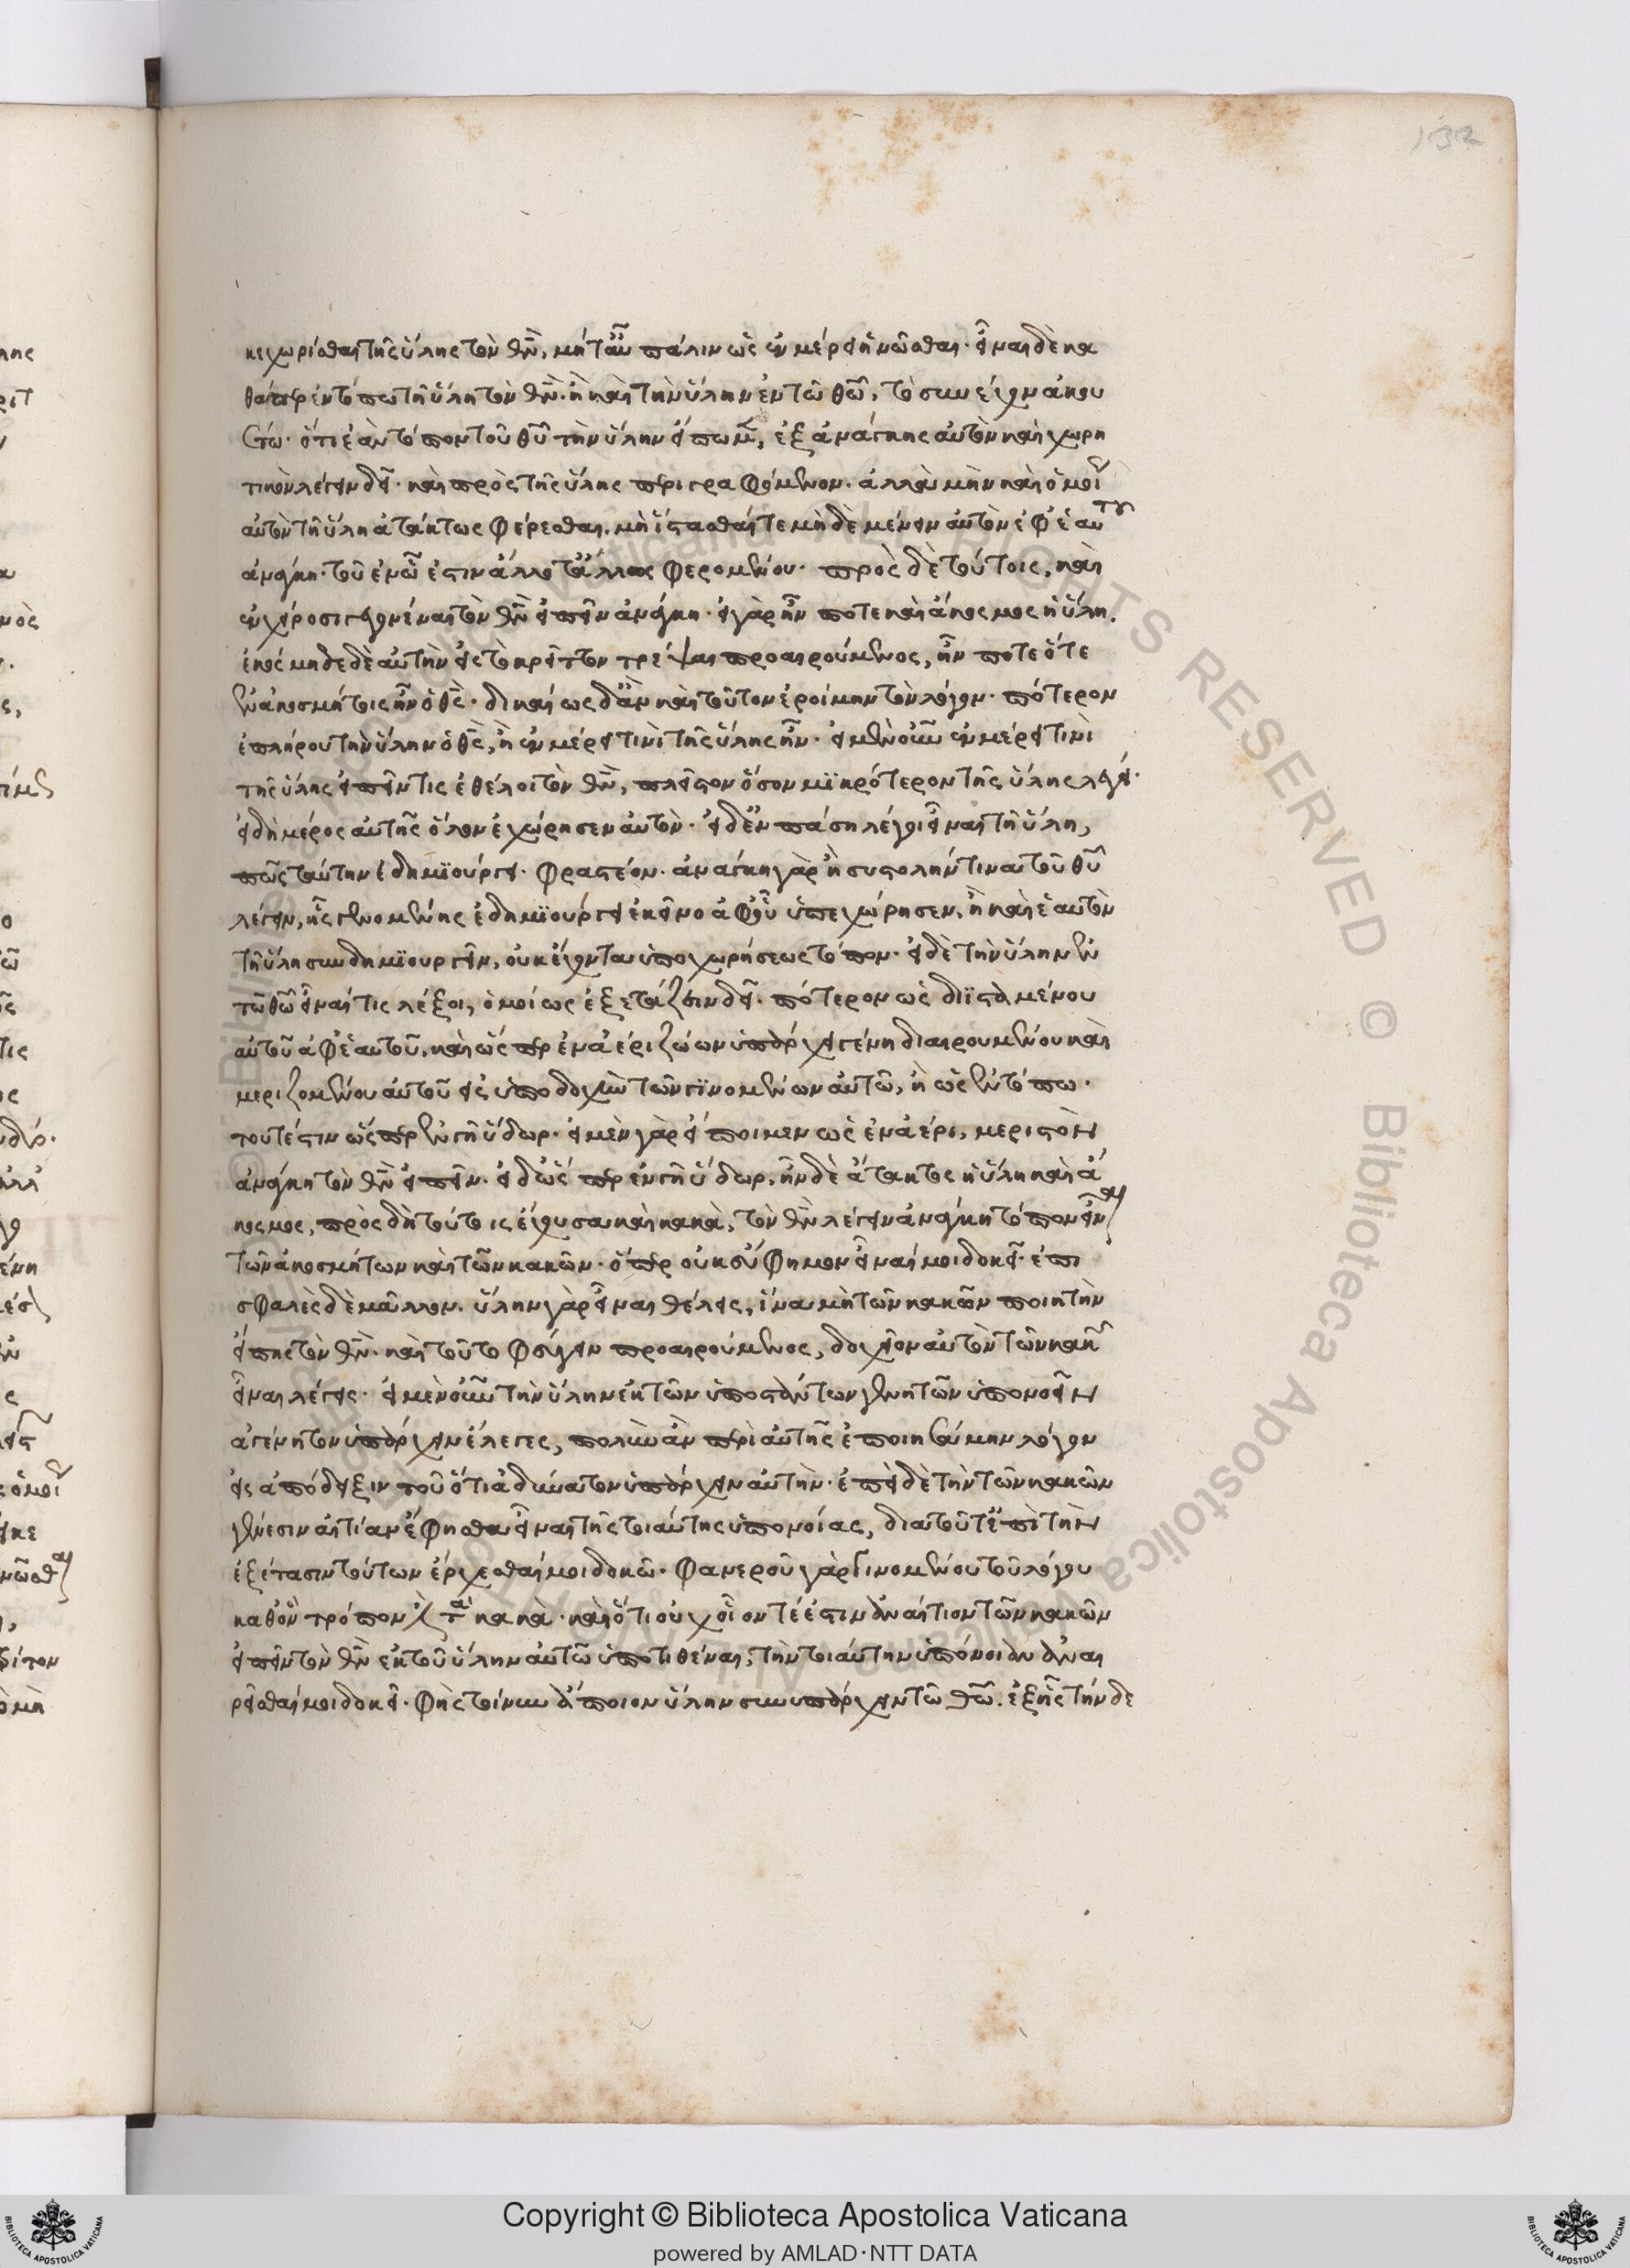 κεχωρίσθαι τῆς ὕλης τὸν θν̄, μήτ' αὖ πάλιν ὡς ἐν μέρει ἡνῶσθαι· εἶναι δὲ κα
θάπερ ἐν τόπω τῆ ὕλη τὸν θν̄. ἢ καὶ τὴν ὕλην ἐν τῶ θω̄, τὸ συνέχον ἀκου
έτω· ὅτι ἐὰν τόπον τοῦ θῡ τὴν ὕλην εἴπωμ, ἐξ ἀνάγκης αὐτὸν καὶ χωρη
τικὸν λέγειν δεῖ· καὶ πρὸς τῆς ὕλης περιγραφόμενον. ἀλλὰ μὴν καὶ ὁμοί
αὐτὸν τῆ ὕλη ἀτάκτως φέρεσθαι. μὴ ἵστασθαί τε μὴδὲ μένειν αὐτὸν ἐφ' ἑαυτου
ἀνάγκη· τοῦ ἐν ὧ ἐστιν ἄλλοτ' ἄλλως φερομένου· πρὸς δὲ τούτοις, καὶ
ἐν χείροσι γεγονέναι τὸν θν̄ εἰπεῖν ἀνάγκη· εἰ γὰρ ἦν ποτε καὶ ἄκοσμος ἡ ὕλη.
ἐκόσμησε δὲ αὐτὴν εἰς τὸ κρεῖττον τρέψαι προαιρούμενος, ἦν ποτε ὅτε
ἐν ἀκοσμήτοις ἦν ὁ θς̄· δικαίως δ' ἂν καὶ τοῦτον ἐροίμην τὸν λόγον· πότερον
ἐπλήρου τὴν ὕλην ὁ θς̄, ἢ ἐν μέρει τινὶ τῆς ὕλης ἦν· εἰ μὲν οὖν ἐν μέρει τινὶ
τῆς ὕλης εἰπεῖν τις ἐθέλοι τὸν θν̄, πλεῖστον ὅσον μϊκρότερον τῆς ὕλης λέγει·
εἰ δὴ μέρος αὐτῆς ὅλον ἐχώρησεν αὐτόν· εἰ δ' ἐν πάση λέγοι εἶναι τῆ ὕλη,
πῶς ταύτην ἐδημϊούργει· φραστέον· ἀνάγκη γὰρ ἢ συστολήν τινα τοῦ θῡ
λέγειν, ἧς γενομένης ἐδημϊούργει ἐκεῖνο ἀφ' οὗ ὑπεχώρησεν, ἢ καὶ ἑαυτὸν
τῆ ὕλη συνδημϊουργεῖν, οὐκ ἔχοντα ὑποχωρήσεως τόπον· εἰ δὲ τὴν ὕλην ἐν
τῶ θω̄ εἶναί τις λέξοι, ὁμοίως ἐξετάζειν δεῖ· πότερον ὡς διϊσταμένου
αὐτοῦ ἀφ' ἑαυτοῦ, καὶ ὥσπερ ἐν ἀέρι ζώων ὑπάρχει γένη διαιρουμένου καὶ
μεριζομένου αὐτοῦ εἰς ὑποδοχὴν τῶν γϊνομένων αὐτῶ, ἢ ὡς ἐν τόπω·
τουτέστιν ὥσπερ ἐν γῆ ὕδωρ· εἰ μὲν γὰρ εἴποιμεν ὡς ἐν ἀέρι, μεριστὸν
ἀνάγκη τὸν θν̄ εἰπεῖν· εἰ δ' ὥσπερ ἐν γῆ ὕδωρ, ἦν δὲ ἄτακτος ἡ ὕλη καὶ ἄ
κοσμος, πρὸς δὴ τούτοις ἔχουσα καὶ κακὰ, τὸν θν̄ λέγειν ἀνάγκη τόπον εἶναι
τῶν ἀκοσμήτων καὶ τῶν κακῶν· ὅπερ οὐκ εὔφημον εἶναί μοι δοκεῖ· ἐπι
σφαλὲς δὲ μᾶλλον. ὕλην γὰρ εἶναι θέλεις, ἵνα μὴ τῶν κακῶν ποιητὴν
εἴπης τὸν θν̄· καὶ τοῦτο φεύγειν προαιρούμενος, δοχεῖον αὐτὸν τῶν κακῶ
εἶναι λέγεις· εἰ μὲν οὖν τὴν ὕλην ἐκ τῶν ὑποστάντων γενητῶν ὑπονοεῖν
ἀγένητον ὑπάρχειν ἔλεγες, πολὺν ἂν περὶ αὐτῆς ἐποιησάμην λόγον
εἰς ἀπόδειξιν τοῦ ὅτι ἀδύνατον ὑπάρχειν αὐτήν· ἐπεὶ δὲ τὴν τῶν κακῶν
γένεσιν αἰτίαν ἔφησθα εἶναι τῆς τοιαύτης ὑπονοίας, διὰ τοῦτ' ἐπὶ τὴν
ἐξέτασιν τούτων ἔρχεσθαί μοι δοκῶ· φανεροῦ γὰρ γινομένου τοῦ λόγου
καθ' ὃν τρόπον ἐστὶ τὰ κακὰ· καὶ ὅτι οὐχ οἷόν τέ ἐστιν ἀναίτιον τῶν κακῶν
εἰπεῖν τὸν θν̄ ἐκ τοῦ ὕλην αὐτῶ ὑποτιθέναι, τὴν τοιαύτην ὑπόνοιαν ἀναι
ρεῖσθαί μοι δοκεῖ· φὴς τοίνυν ἄποιον ὕλην συνυπάρχειν τῶ θω̄. ἐξ ἧς τήνδε
Copyright © Biblioteca Apostolica Vaticana
powered by AMLAD·NTT DATA